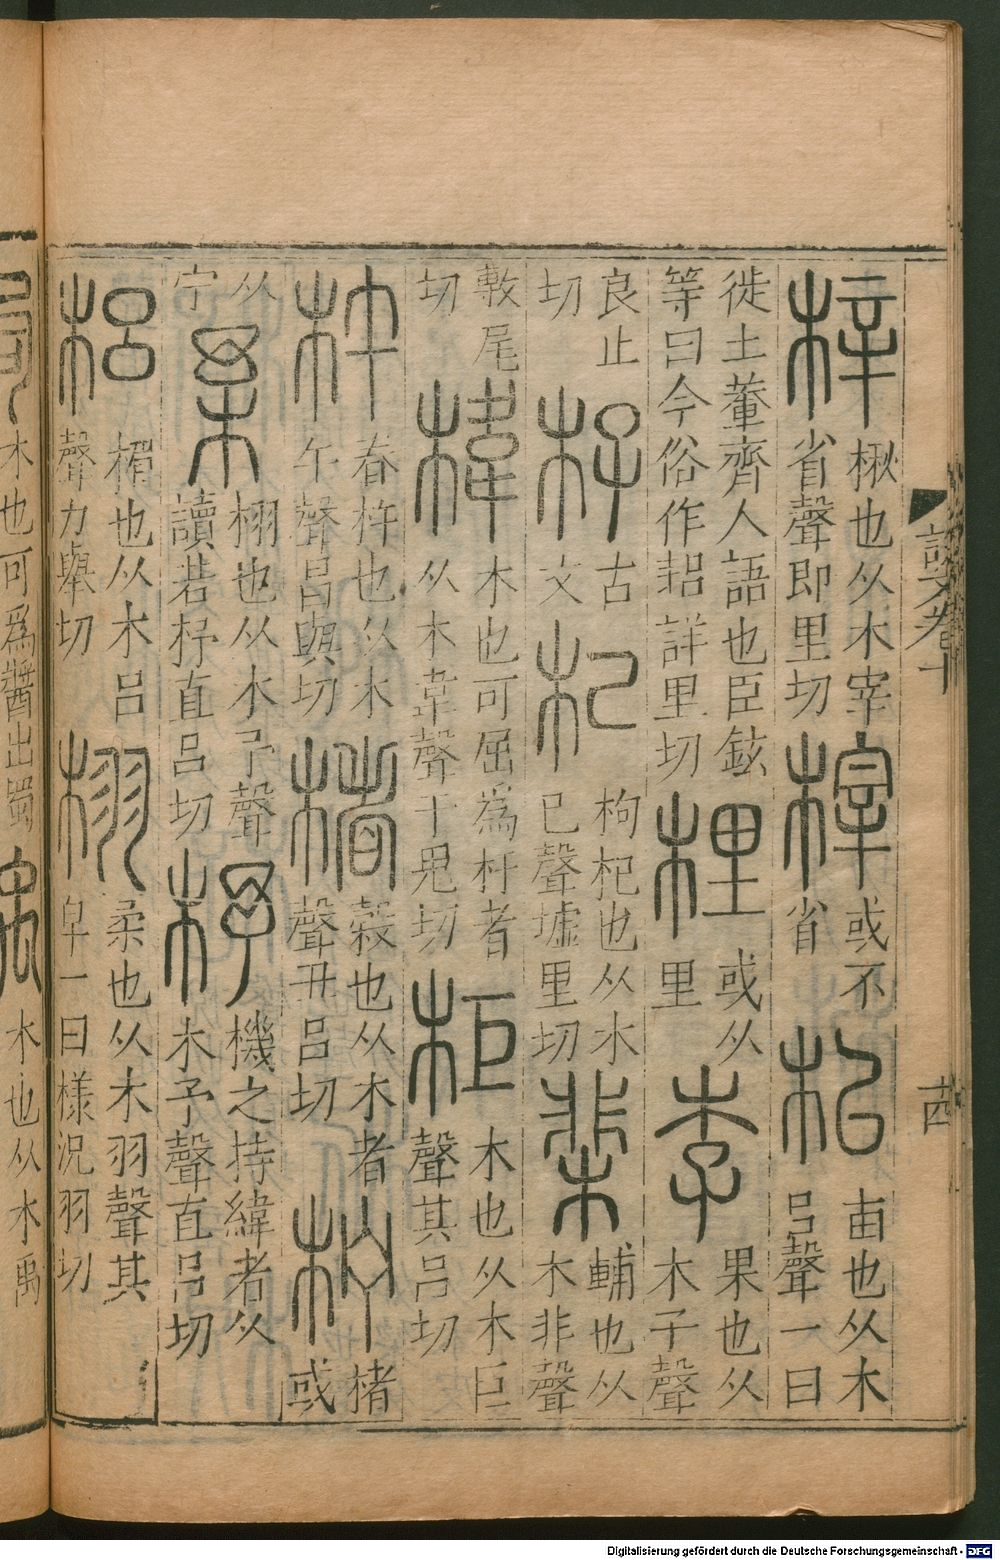 梓楸也从木宰省聲即里切榟或不省㭒臿也从木㠯聲一曰
徙土輂齊人語也臣鉉等曰今俗作耜詳里切梩或从里李果也从木子聲
良止切杍古文杞枸杞也从木已聲墟里切棐輔也从木非聲
敷尾切椲木也可屈為杅者从木韋聲于鬼切柜木也从木巨聲其呂切
杵舂杵也从木午聲昌與切楮穀也从木者聲丑呂切柠楮或
从宁柔栩也从木予聲讀若杼直呂切杼機之持緯者从木予聲直呂切
梠楣也从木呂聲力舉切栩柔也从木羽聲其皁一曰樣況羽切
木也可為醬出蜀
木也从木禹
廿四
Digitalisierung gefördert durch die Deutsche Forschungsgemeinschaft - DFG